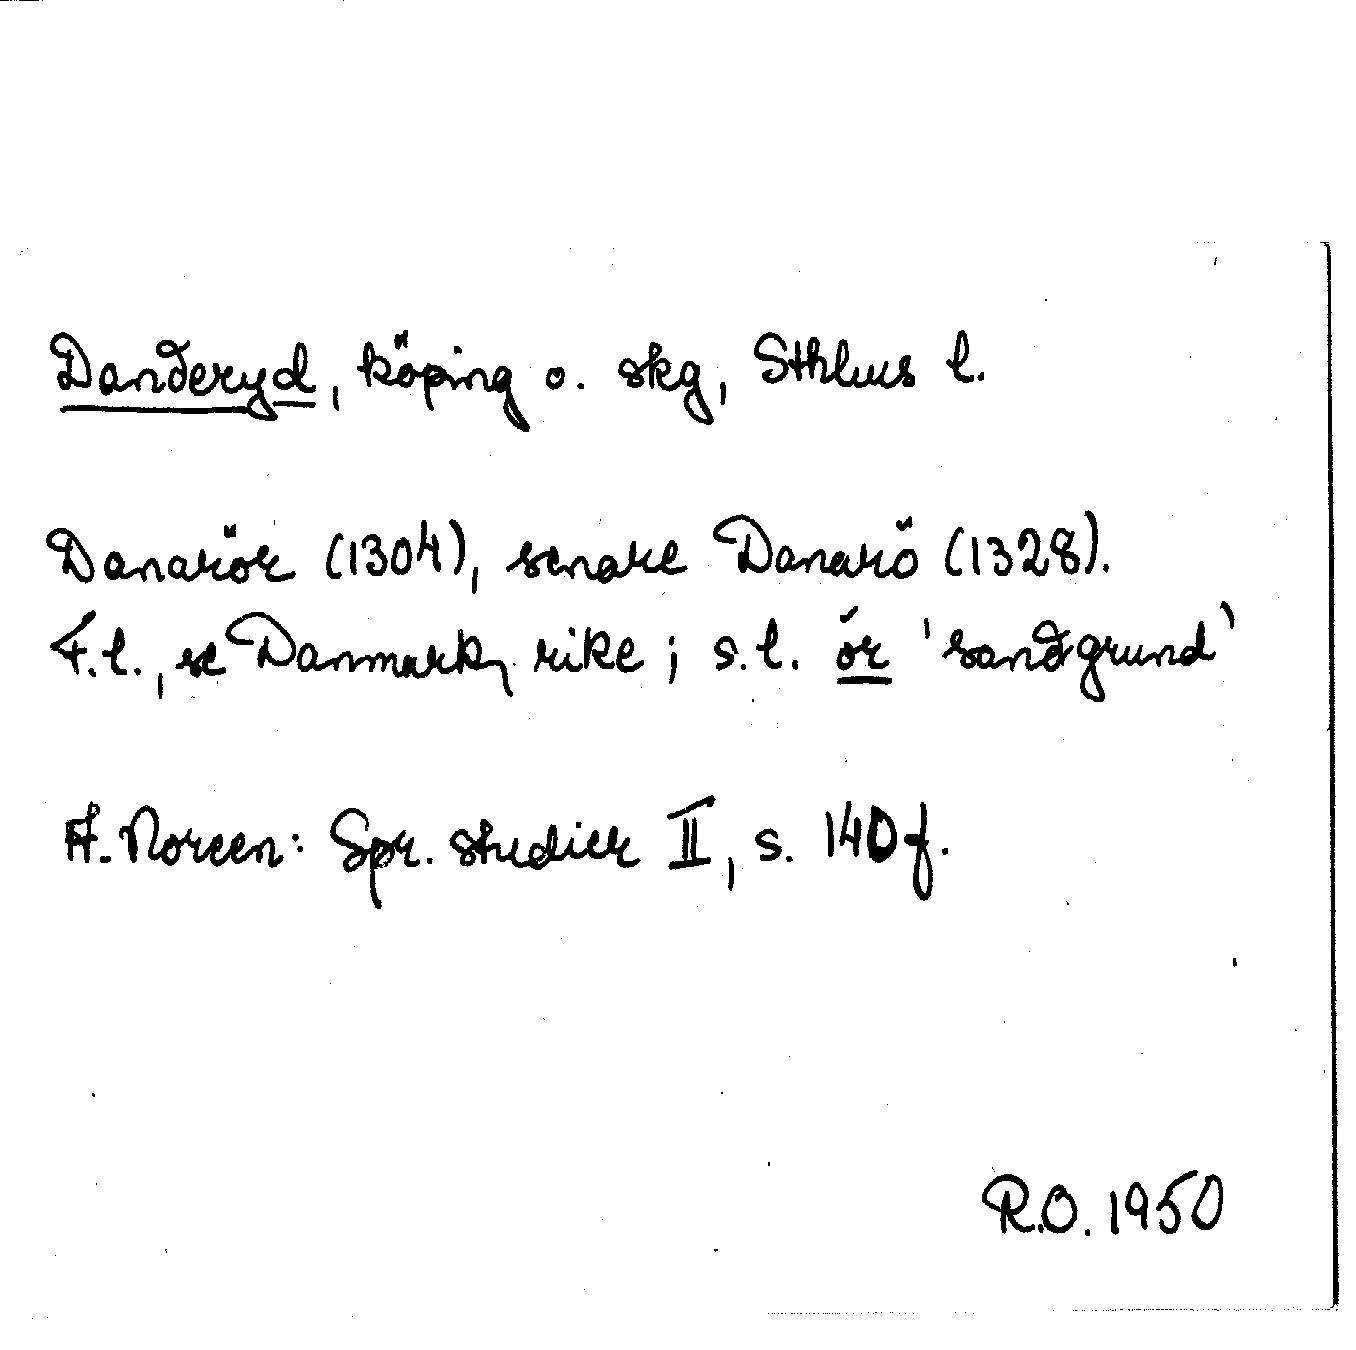 Danderyd, köping o. skg, Sthlms l.
Danarör (1304), senare Danarö (1328).
F.l., se Danmark, rike; s.l. ör 'sandgrund'
A. Noreen: Spr. studier II, s. 140 f.
R.O. 1950